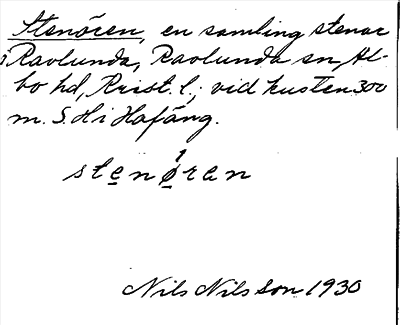 Stenören, en samling stenar
i Ravlunda, Ravlunda sn, Al-
bo hd, Krist. l.; vid kusten 300
m. S. H i Hafäng.
stenören
Nils Nilsson 1930